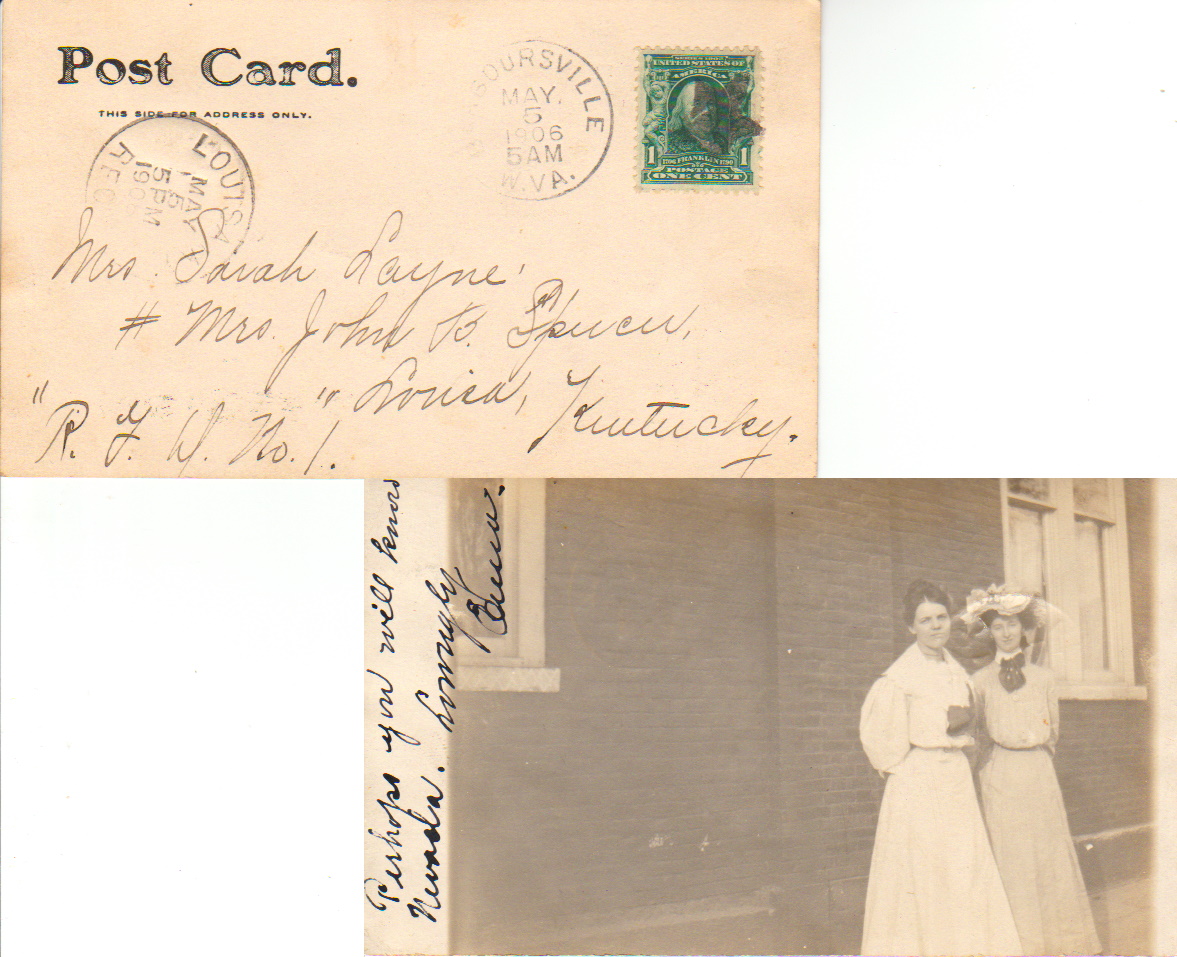 Post Card.
THIS SIDE FOR ADDRESS ONLY.
BOURSVILLE
MAY.
5
1906
5AM
W.VA.
SERIES 1902
UNITED STATES OF
AMERICA
1 1706 FRANKLIN 1790 1
POSTAGE
ONE CENT
LOUISA
MAY
5
5PM
190
REC
Mrs. Sarah Layne,
# Mrs. John B. Spencer,
" " Louisa, Kentucky.
R. F. D. No. 1.
Perhaps you will know
Nevada. Lovingly